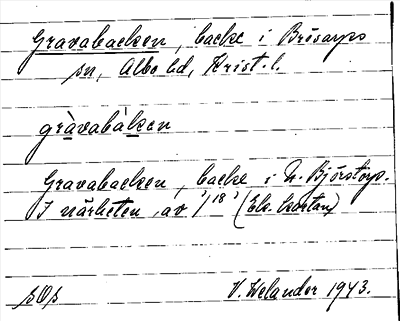 Gravabacken, backe i Brösarps
sn, Albo hd, Krist. l.
gràvabàken
Gravabacken, backe i N. Björstorp.
I närheten av '/18' (Ek. kartan)
sOs V. Welander 1943.